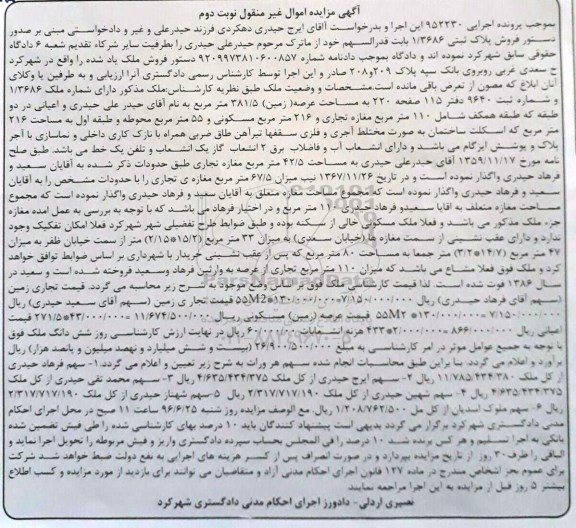 آگهی مزایده اموال غیر منقول نوبت دوم
بموجب پرونده اجرایی ۹۵۲۲۳۰ این اجرا و بدرخواست آقای ایرج حیدری دهکردی فرزند حیدرعلی و غیر و دادخواستی مبنی بر صدور
دستور فروش پلاک ثبتی ۱/۳۶۸۶ بابت قدرالسهم خود از ماترک مرحوم حیدرعلی حیدری را بطرفیت سایر شرکاء تقدیم شعبه ۶ دادگاه
حقوقی سابق شهرکرد نموده اند و دادگاه بموجب دادنامه شماره ۹۲۰۹۹۷۳۸۱۰۶۰۰۸۵۷ دستور فروش ملک یاد شده را واقع در شهرکرد
خ سعدی غربی روبروی بانک سپه پلاک ۲۰۹و۲۰۸ صادر و این اجرا توسط کارشناس رسمی دادگستری آنرا ارزیابی و به طرفین یا وکلای
آنان ابلاغ که مصون از تعرض باقی مانده است.مشخصات و وضعیت ملک طبق نظریه کارشناس:ملک مذکور دارای شماره ملک ۱/۳۶۸۶
و شماره ثبت ۹۶۴۰ دفتر ۱۱۵ صفحه ۲۲۰ به مساحت عرصه( زمین) ۳۸۱/۵ متر مربع به نام آقای حیدر علی حیدری و اعیانی در دو
طبقه که طبقه همکف شامل ۱۱۰ متر مربع مغازه تجاری و ۲۱۶ متر مربع مسکونی و ۵۵ متر مربع محوطه و طبقه اول به مساحت ۲۱۶
متر مربع که اسکلت ساختمان به صورت مختلط آجری و فلزی سقفها تیرآهن طاق ضربی همراه با نازک کاری داخلی و نماسازی با آجر
پلاک و پوشش ایزگام می باشد و دارای انشعاب آب و فاضلاب برق ۲ انشعاب گاز یک انشعاب و تلفن یک خط می باشد. طبق صلح
نامه مورخ ۱۳۵۹/۱۱/۱۷ آقای حیدرعلی حیدری به مساحت ۴۲/۵ متر مربع مغازه تجاری طبق حدودات ذکر شده به آقایان سعید و
فرهاد حیدری واگذار نموده است و در تاریخ ۱۳۶۷/۱۱/۲۶ نیب میزان ۶۷/۵ متر مربع مغازه ی تجاری را با حدودات مشخص را به آقایان
سعید و فرهاد حیدری واگذار نموده است که مساحت مغازه متعلق به آقایان سعید و فرهاد حیدری واگذار نموده است که مجموع
مساحت مغازه متعلقه به آقایا سعیدو فرهاد حیدری ۱۱۰ متر مربع و در اختیار فرهاد می باشد که با توجه به بررسی به عمل امده مغازه
جزء ملک مذکور می باشد و فعلا ملک مسکونی خالی از سکنه بوده و طبق ضوابط طرح تفصیلی شهر شهرکرد فعلا امکان تفکیک وجود
ندارد و دارای عقب نشینی از سمت مغازه ها(خیابان سعدی) به میزان ۳۳ متر مربع (۱۵/۲*۲/۱۵) متر از سمت خیابان ظفر به میزان
۴۷ متر مربع (۱۴/۷*۳/۲) متر جمعا به مساحت ۸۰ متر مربع که پس از عقب نشینی خریدار با شهرداری بر اساس ضوابط توافق خواهد
کرد و ملک فوق فعلا مشاع می باشد که میزان ۱۱۰ متر مربع تجاری از عرصه به وارثین فرهاد وسعید فروخته شده است و سعید در
سال ۱۳۸۶ فوت شده است. لذا قیمت کارشناسی ملک فوق در وضع موجود به شرح زیر محاسبه می گردد. قیمت تجاری زمین
(سهم آقای فرهاد حیدری) ریال ۷/۱۵۰/۰۰۰/۰۰۰=۱۳۰/۰۰۰/۰۰۰*۵۵M2 قیمت تجاری زمین (سهم آقای سعید حیدری) ریال
۷/۱۵۰/۰۰۰/۰۰۰ =۱۳۰/۰۰۰/۰۰۰* ۵۵M2 قیمت عرصه (زمین) مسکونی ریال ۱۱/۶۷۴/۵۰۰/۰۰۰ =۴۳/۰۰۰/۰۰۰*۲۷۱/۵ قیمت
اعیانی ریال ۸۶۶/۰۰۰/۰۰۰=۲/۰۰۰/۰۰۰*۴۳۳ هزینه انشعابات ۶۰/۰۰۰/۰۰۰ ریال در نهایت ارزش کارشناسی روز شش دانگ ملک فوق
با توجه به جمیع عوامل موثر در امر کارشناسی به مبلغ ۲۶/۹۰۰/۵۰۰/۰۰۰ (بیست و شش میلیارد و نهصد میلیون و پانصد هزار) ریال
برآورد و اعلام می گردد. بنا براین طبق محاسبات انجام شده سهم هر وراث به شرح زیر تعیین و اعلام می گردد.۱- سهم فرهاد حیدری
از کل ملک ۱۱/۷۸۵/۴۳۴/۳۸۰ ریال ۲- سهم ایرج حیدری از کل ملک ۴/۶۳۵/۴۳۴/۳۷۵ ریال ۳- سهم محمد تقی حیدری از کل ملک
۴/۶۳۵/۴۳۴/۳۷۵ ریال ۴- سهم شهین حیدری از کل ملک ۲/۳۱۷/۷۱۷/۱۹۰ ریال ۵-سهم شهناز حیدری از کل ملک ۲/۳۱۷/۷۱۷/۱۹۰
ریال ۶- سهم ملوک اسدیان از کل مل ۱/۲۰۸/۷۶۲/۵۰۰ ریال. مع الوصف مزایده روز شنبه ۹۶/۶/۲۵ ساعت ۱۱ صبح در محل اجرای احکام
مدنی دادگستری شهرکرد برگزار می گردد بدیهی است پیشنهاد کنندگان باید ۱۰ درصد بهای کارشناسی شده را طی فیش تضمین شده
بانکی به اجرا تسلیم و هر کس برنده شد ۱۰ درصد را فی المجلس بحساب سپرده دادگستری واریز و فیش مربوطه را تحویل اجرا نماید و
الباقی را ظرف۳۰ روز از تاریخ مزایده بپردازد و در صورت انصراف پس از کسر هزینه های اجرایی به نفع دولت ضبط خواهد شد شرکت
برای عموم بجز اشخاص مندرج در ماده ۱۲۷ قانون اجرای احکام مدنی آزاد و متقاضیان می توانند برای بازدید از مورد مزایده و کسب اطلاع
بیشتر ۵ روز قبل از مزایده به این اجرا مراجعه نمایند.
نصیری اردلی- دادورز اجرای احکام مدنی دادگستری شهرکرد